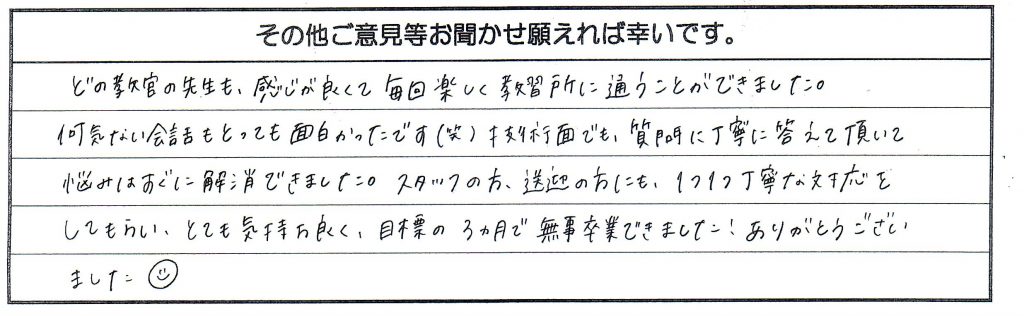 その他ご意見等お聞かせ願えれば幸いです。
どの教官の先生も、感じが良くて毎回楽しく教習所に通うことができました。
何気ない会話もとっても面白かったです(笑)技術面でも、質問に丁寧に答えて頂いて
悩みはすぐに解消できました。スタッフの方、送迎の方にも、1つ1つ丁寧な対応を
してもらい、とても気持ち良く、目標の3ヵ月で無事卒業できました!ありがとうござい
ました☺